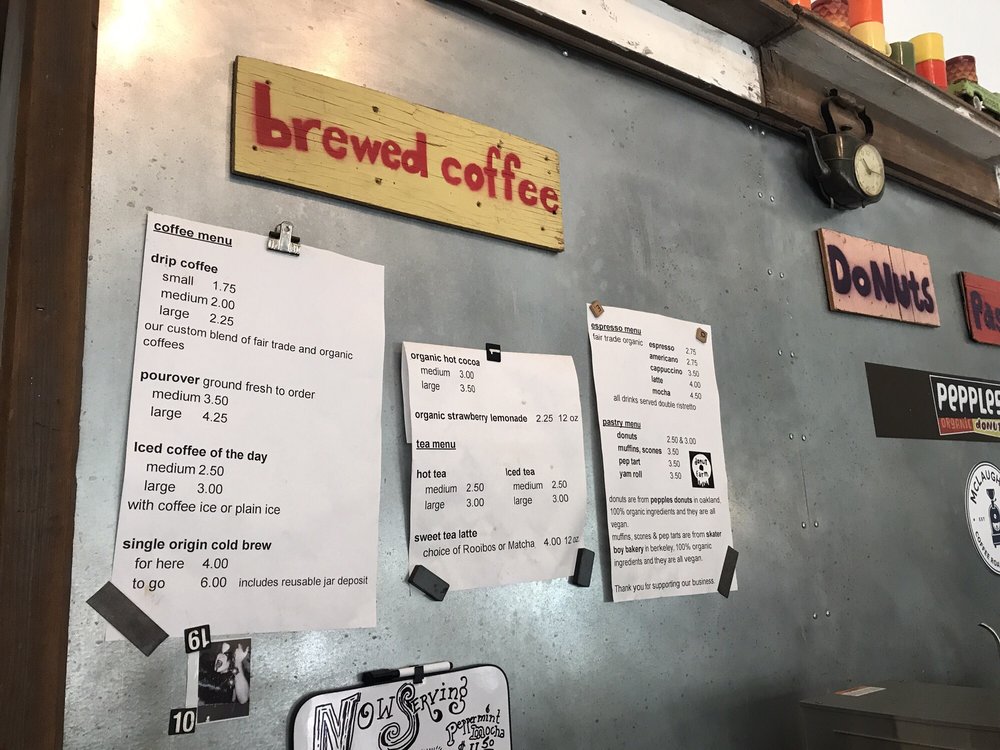 brewed coffee
coffee menu
drip coffee
small 1.75
medium 2.00
large 2.25
our custom blend of fair trade and organic
coffees
pourover ground fresh to order
medium 3.50
large 4.25
Iced coffee of the day
medium 2.50
large 3.00
with coffee ice or plain ice
single origin cold brew
for here 4.00
to go 6.00 includes reusable jar deposit
19
10
organic hot cocoa
medium 3.00
large 3.50
organic strawberry lemonade 2.25 12 oz
tea menu
hot tea Iced tea
medium 2.50 medium 2.50
large 3.00 large 3.00
sweet tea latte
choice of Rooibos or Matcha 4.00 12 oz
espresso menu
fair trade organic espresso 2.75
americano 2.75
cappuccino 3.50
latte 4.00
mocha 4.50
all drinks served double ristretto
pastry menu
donuts 2.50 & 3.00
muffins, scones 3.50
pep tart 3.50
yam roll 3.50
donut
farm
donuts are from pepples donuts in oakland.
100% organic ingredients and they are all
vegan.
muffins, scones & pep tarts are from skater
boy bakery in berkeley, 100% organic
ingredients and they are all vegan.
Thank you for supporting our business.
Now Serving
Peppermint
mocha
DoNuts
Pas
PEPPLES
ORGANIC DONUT
MCLAUGH
EST
COFFEE ROA